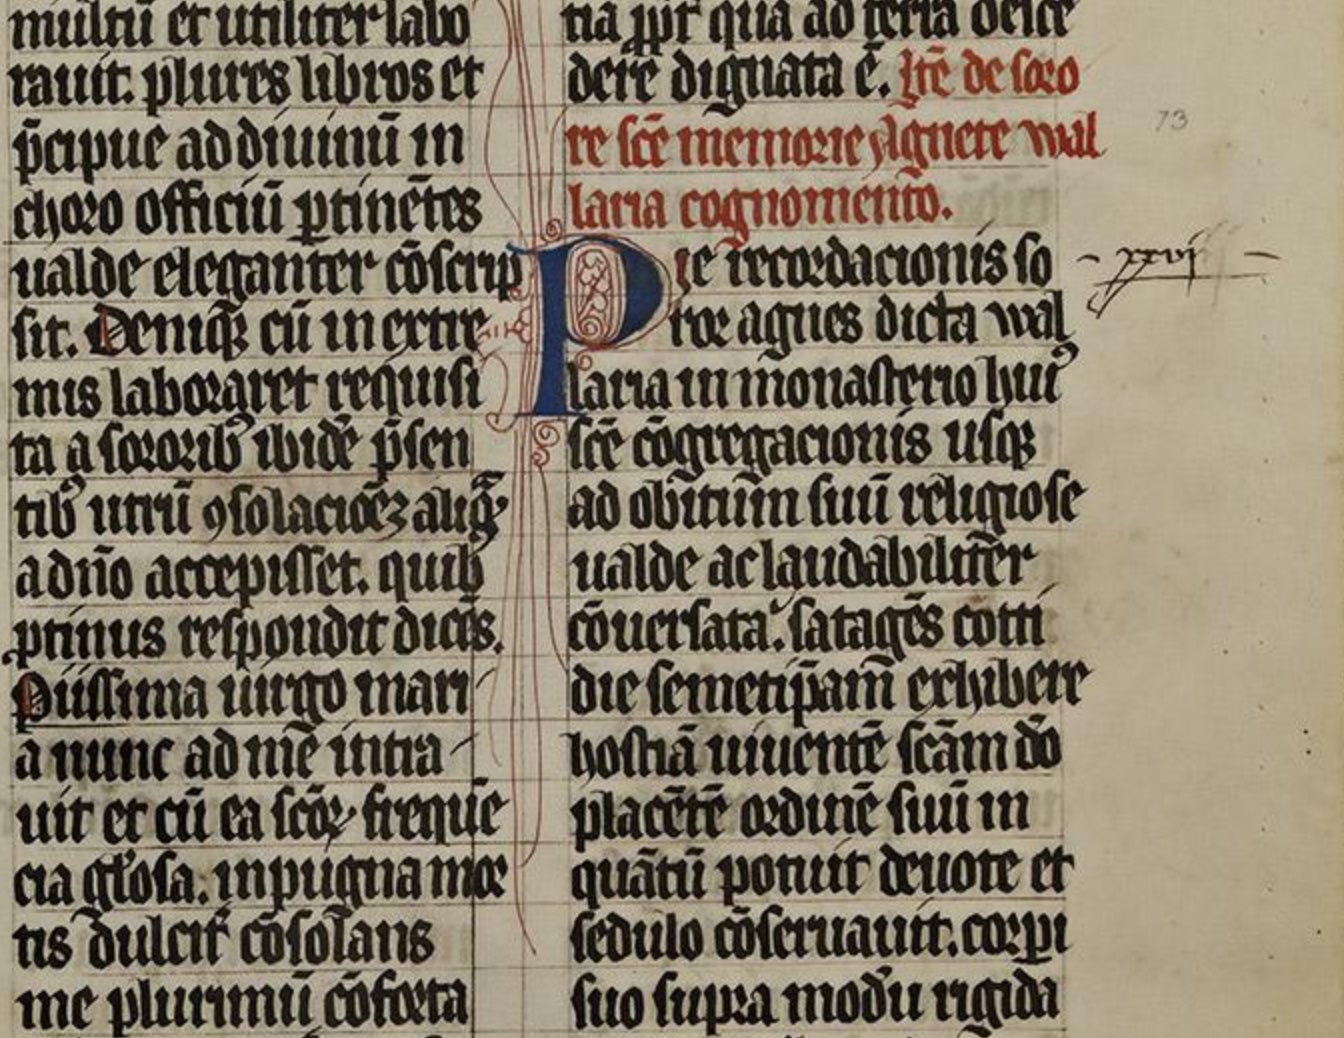 multū et utiliter labo
rauit. plures libros et
p̄cipue ad diuinū in
choro officiū ꝑtinētes
ualde eleganter cōscrip
sit. Deniqꝫ cū in extre
mis laboraret requisi
ta a sororibꝰ ibidē p̄sen
tibꝰ utrū ꝯsolacioēꝫ aliqᷓ
a dn̄o accepisset. quibꝰ
ꝓtinus respondit dicēs.
Piissima uirgo mari
a nunc ad mē intra
uit et cū ea scōꝝ freque̅
cia gl'osa. in pugna mor
tis dulcit᷑ cōsol̄ans
me plurimū cōforta
tia ꝓpt᷑ quā ad terrā desce
dere dignata ē. Itē de soro
re scē memorie Agnete wal
laria cognomēto.
Pie recordacionis so
ror agnes dicta wal
laria in monasterio huiꝰ
scē cōgregacionis usqꝫ
ad obitum suū religiose
ualde ac laudabiliter
cōuersata. satagēs cotti
die semetip̄am exhibere
hostiā uiuentē scām dō
placētē ordinē suū in
quātū potuit deuote et
sedulo cōseruauit. corpi
suo supra modū rigida
73
xxvi